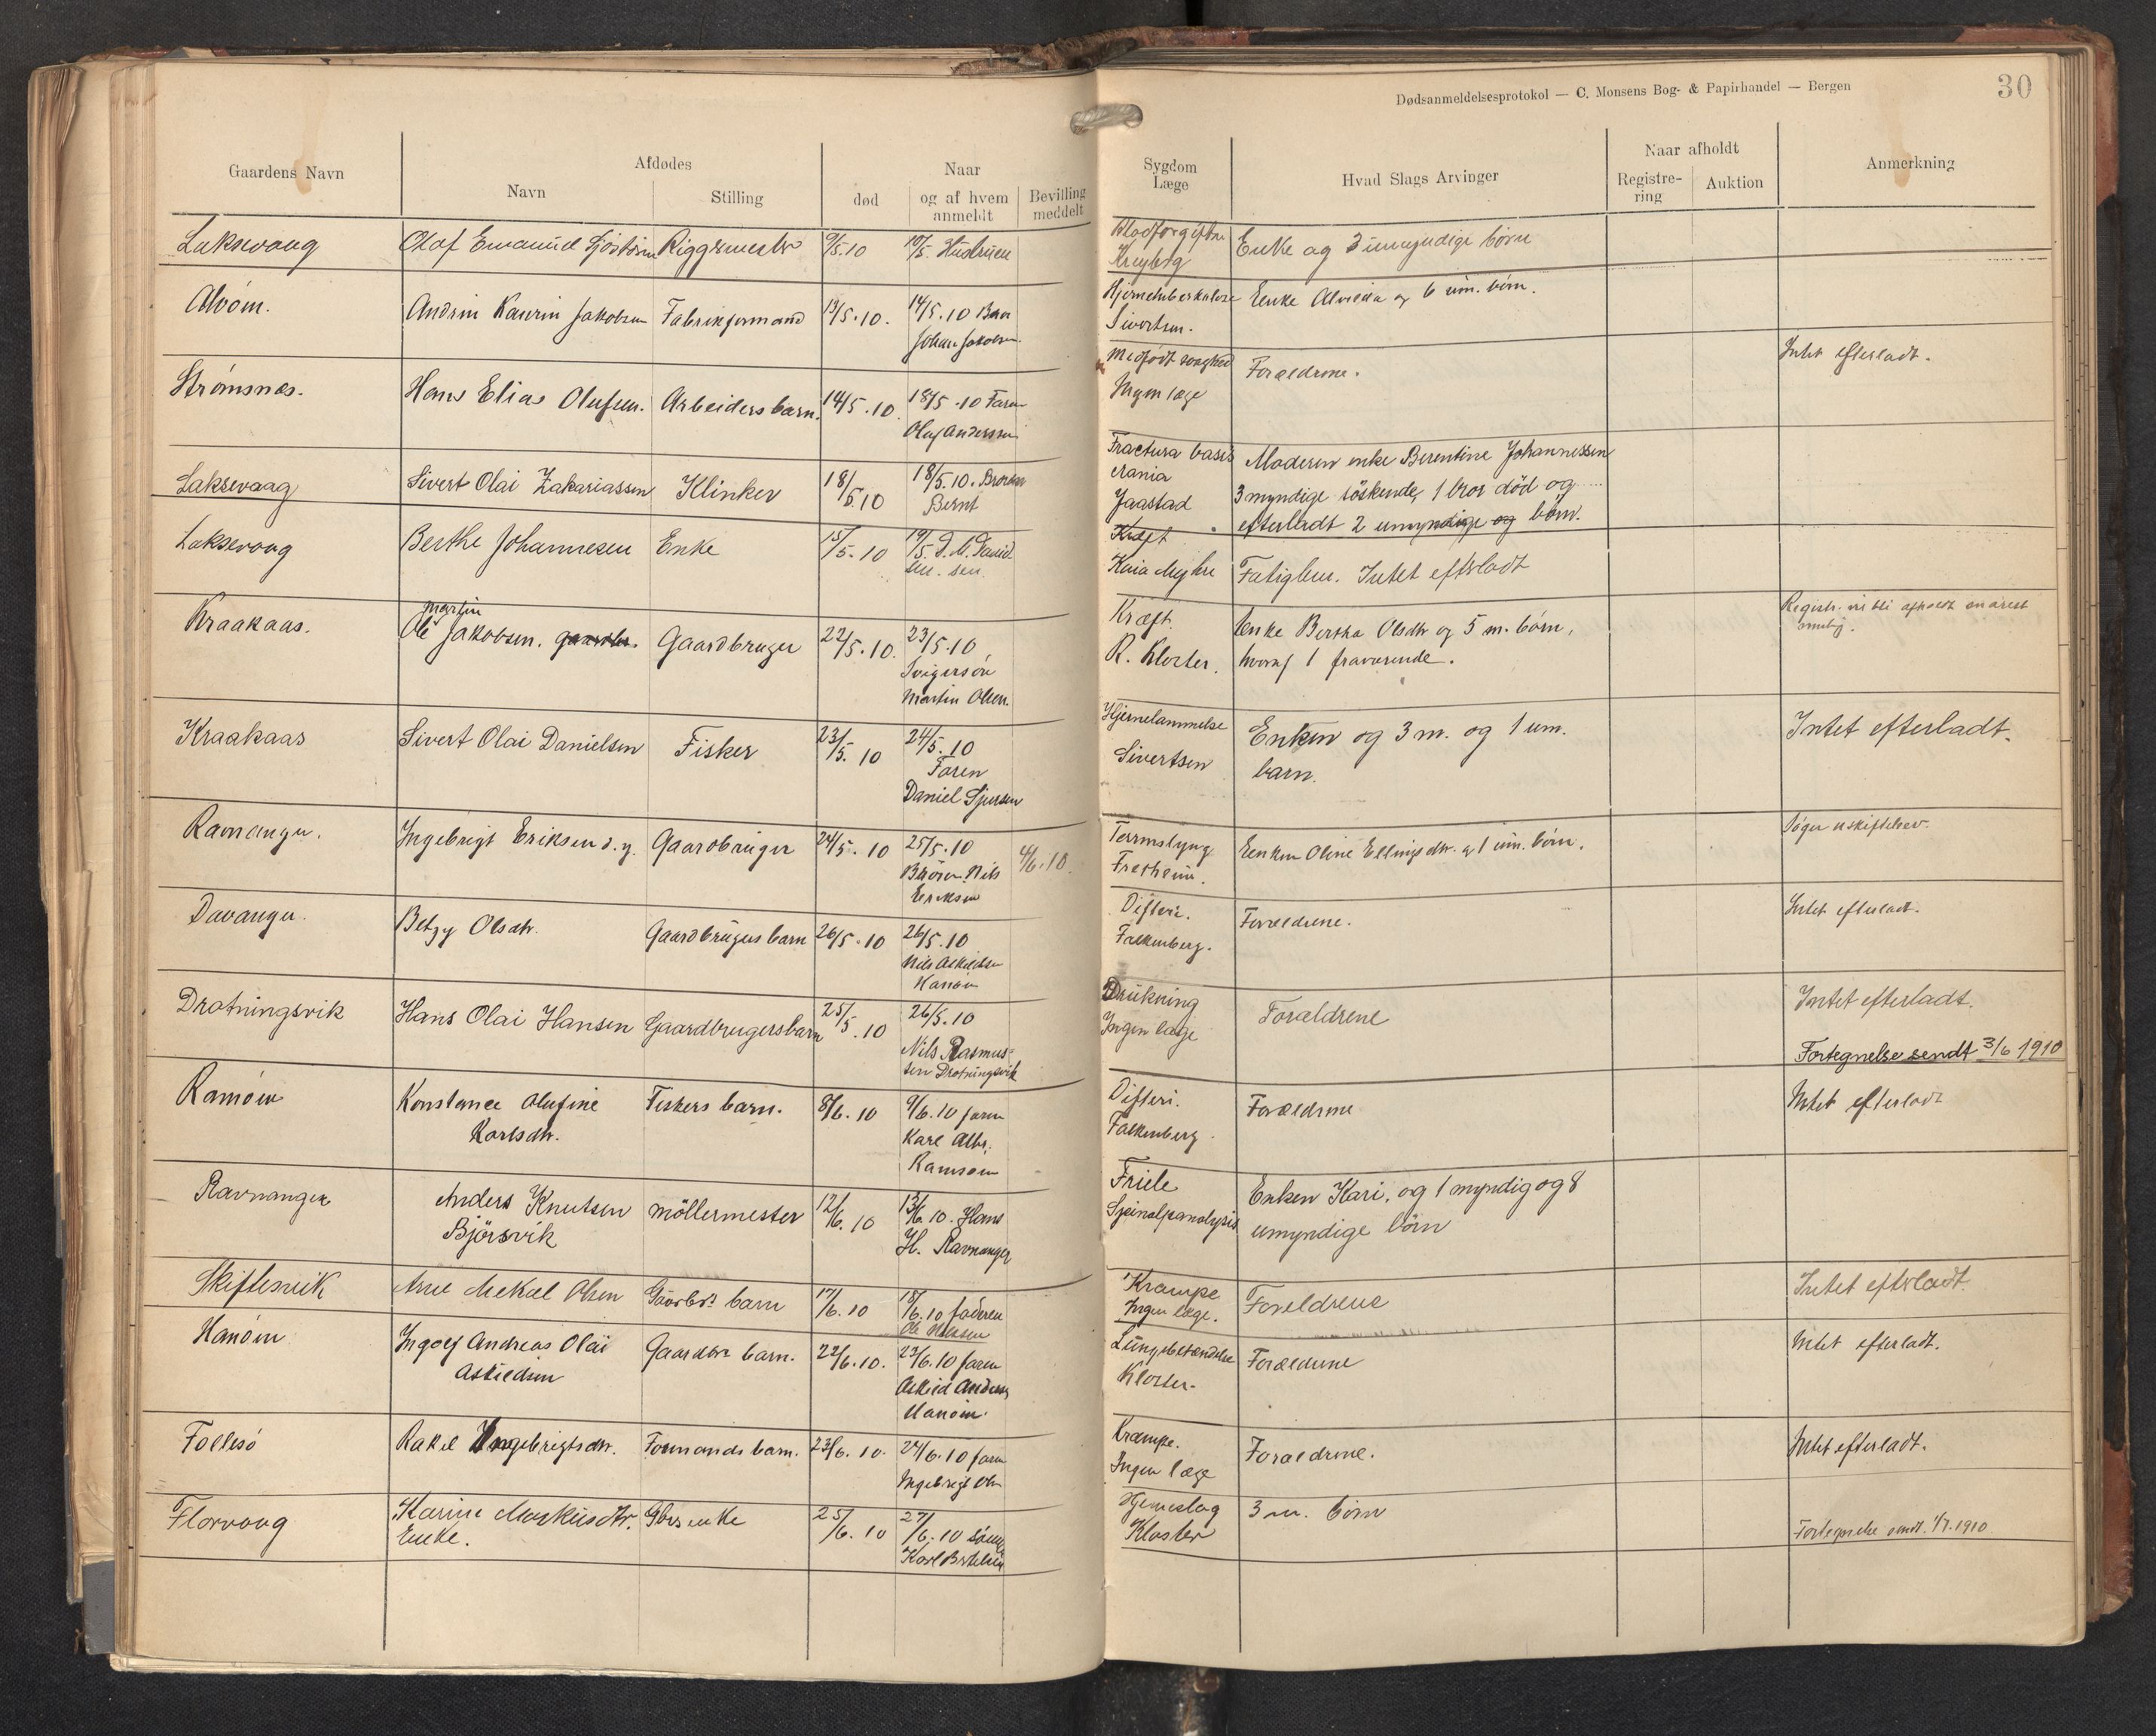 Dødsanmeldelsesprotokol — C. Monsens Bog- & Papirhandel — Bergen
30
Gaardens Navn
Afdødes
Navn
Stilling
Naar
død
og af hvem
anmeldt
Bevilling
meddelt
Sygdom
Læge
Hvad Slags Arvinger
Naar afholdt
Registre-
ring
Auktion
Anmerkning
Laksevaag
Olaf Emanuel Sjöström Riggemester 9/5.10 10/5. Hustruen
Blodforgiftn
Enke og 3 umyndige børn
Alvöen.
Andrin Kaurin Jakobsen Fabrikformand 13/5.10. 14/5.10
Johan Jakobsen
Hjernetuberkulose
Enke og 6 um. börn.
Sivertsen.
Strömsnes.
Hans Elias Olufsen. Arbeidersbarn. 14/5.10. 18/5.10 Faren
Oluf Anderssen
Medfödt svaghed
Ingen læge
Forældrene.
Intet efterladt.
Laksevaag
Sivert Olai Zakariassen Klinker 18/5.10 18/5.10. Broren
Bernt
Fractura basis
crania
Jaastad
Moderen enke Berentine Johannessen
3 myndige söskende, 1 bror död og
efterladt 2 umyndige og börn.
Laksevaag
Berthe Johannesen Enke 15/5.10 19/5.
Kræft
Kaia Myhre
Intet efterladt
Kraakaas.
Martin
Ole Jakobsen. gaardbr. Gaardbruger 22/5.10. 23/5.10
Svigersön
Martin Olsen.
Kræft.
R. Kloster.
Enke Bertha Olsdtr og 5 m. börn,
hvoraf 1 fraværende.
Kraakaas
Sivert Olai Danielsen Fisker 23/5.10 24/5.10
Faren
Daniel Sjursen
Hjernelammelse
Sivertsen
Enken og 3 m. og 1 um.
barn.
Intet efterladt.
Ravnanger.
Ingebrigt Eriksen d.y. Gaardbruger 24/5.10 25/5.10
Broren Nils
Eriksen
4/6.10.
Tarmslyng
Fretheim.
Enken Oline Ellingsdtr. og 1 um. börn.
Davanger.
Betzy Olsdtr. Gaardbrugers barn 26/5.10 26/5.10
Nils Askildsen
Hanöen
Difteri.
Falkenberg.
Forældrene.
Intet efterladt.
Drotningsvik
Hans Olai Hansen Gaardbrugersbarn 25/5.10 26/5.10
Nils Rasmus-
sen Drotningsvik
Drukning
Ingen læge
Forældrene
Intet efterladt.
Fortegnelse sendt 3/6 1910
Ramöen
Konstance Olufine
Karlsdtr.
Fiskers barn. 8/6.10 9/6.10 faren
Karl Albr.
Ramsöen
Difteri.
Falkenberg.
Forældrene
Intet efterladt
Ravnanger
Anders Knutsen
Björsvik
möllermester 12/6.10 13/6.10. Hans
H. Ravnanger
Friele
Enken Kari, og 1 myndig og 8
umyndige börn
Skiftesvik
Arne Mekal Olsen Gaardbrs barn 17/6.10 18/6.10 faderen
Krampe
Ingen læge.
Forældrene
Intet efterladt.
Hanöen
Ingolf Andreas Olai
Askildsen
Gaardbrs barn. 22/6.10. 23/6.10 faren
Askild Anders
Hanöen.
Lungebetændelse
Kloster.
Forældrene
Intet efterladt.
Follesö
Rakel Ingebrigtsdtr. Formands barn. 23/6.10. 24/6.10 faren
Ingebrigt Olsen
Krampe.
Ingen læge
Forældrene.
Intet efterladt.
Florvaag
Karine Markusdtr.
Enke.
Gbrs enke 25/6.10 27/6.10 sönnen
Karl Bertelsen
Hjerneslag
Kloster
3 m. börn
Fortegnelse sendt. 1/7.1910